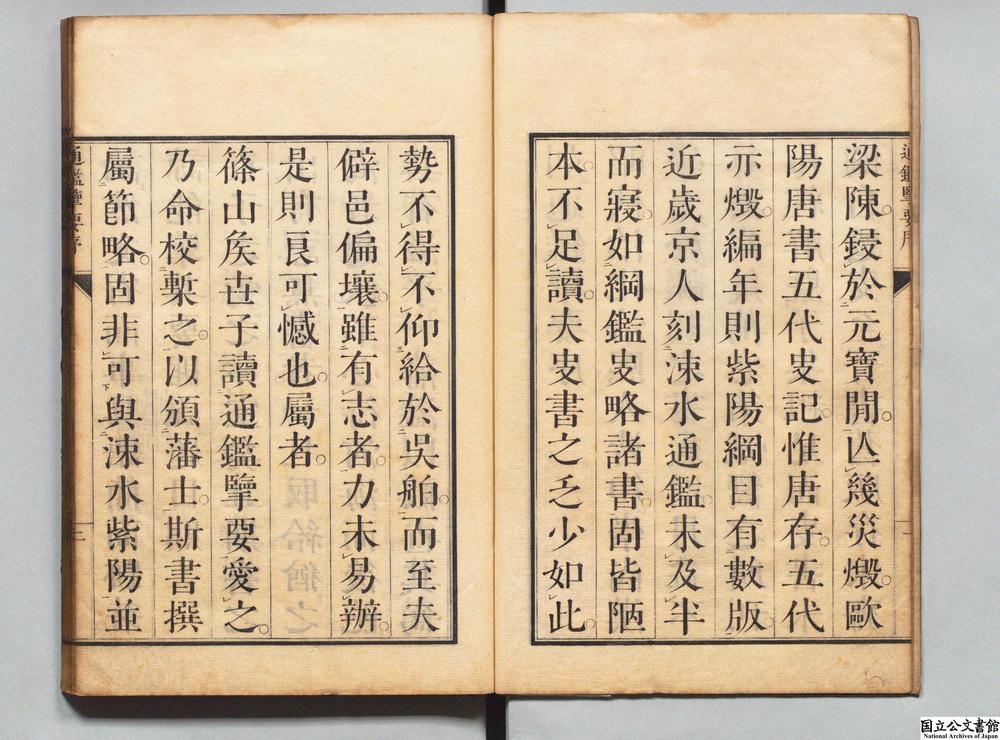 通鑑擥要序
梁陳。鋟於元寶閒。亾幾災燬。歐
陽唐書五代史記。惟唐存。五代
亦燬。編年則紫陽綱目有數版。
近歲京人刻涑水通鑑。未及半
而寢。如綱鑑史略諸書。固皆陋
本。不足讀。夫史書之乏少如此。
勢不得不仰給於吳舶。而至夫
僻邑偏壤。雖有志者。力未易辦。
是則良可憾也。屬者。
篠山矦世子讀通鑑擥要愛之。
乃命校槧之。以頒藩士。斯書撰
屬節略。固非可與涑水紫陽並
通鑑擥要序
二
国立公文書館
National Archives of Japan